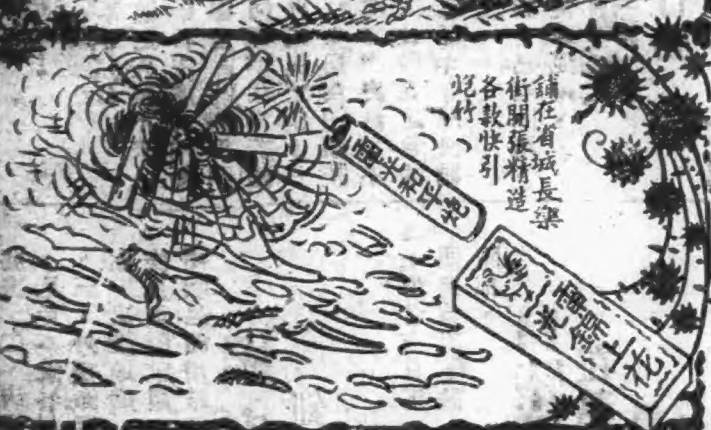 鋪在省城長樂
街開張精造
各款快引
炮竹
電光和平炮
電光
錦上花